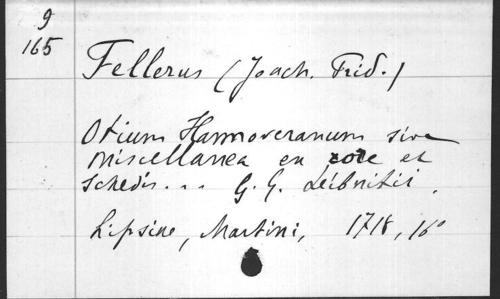 9
165
Fellerus (Joach. Frid.)
Otium Hannoveranum sive
miscellanea ex ore et
schedis... G. G. Leibnitii.
Lipsiae, Martini, 1718, 16°